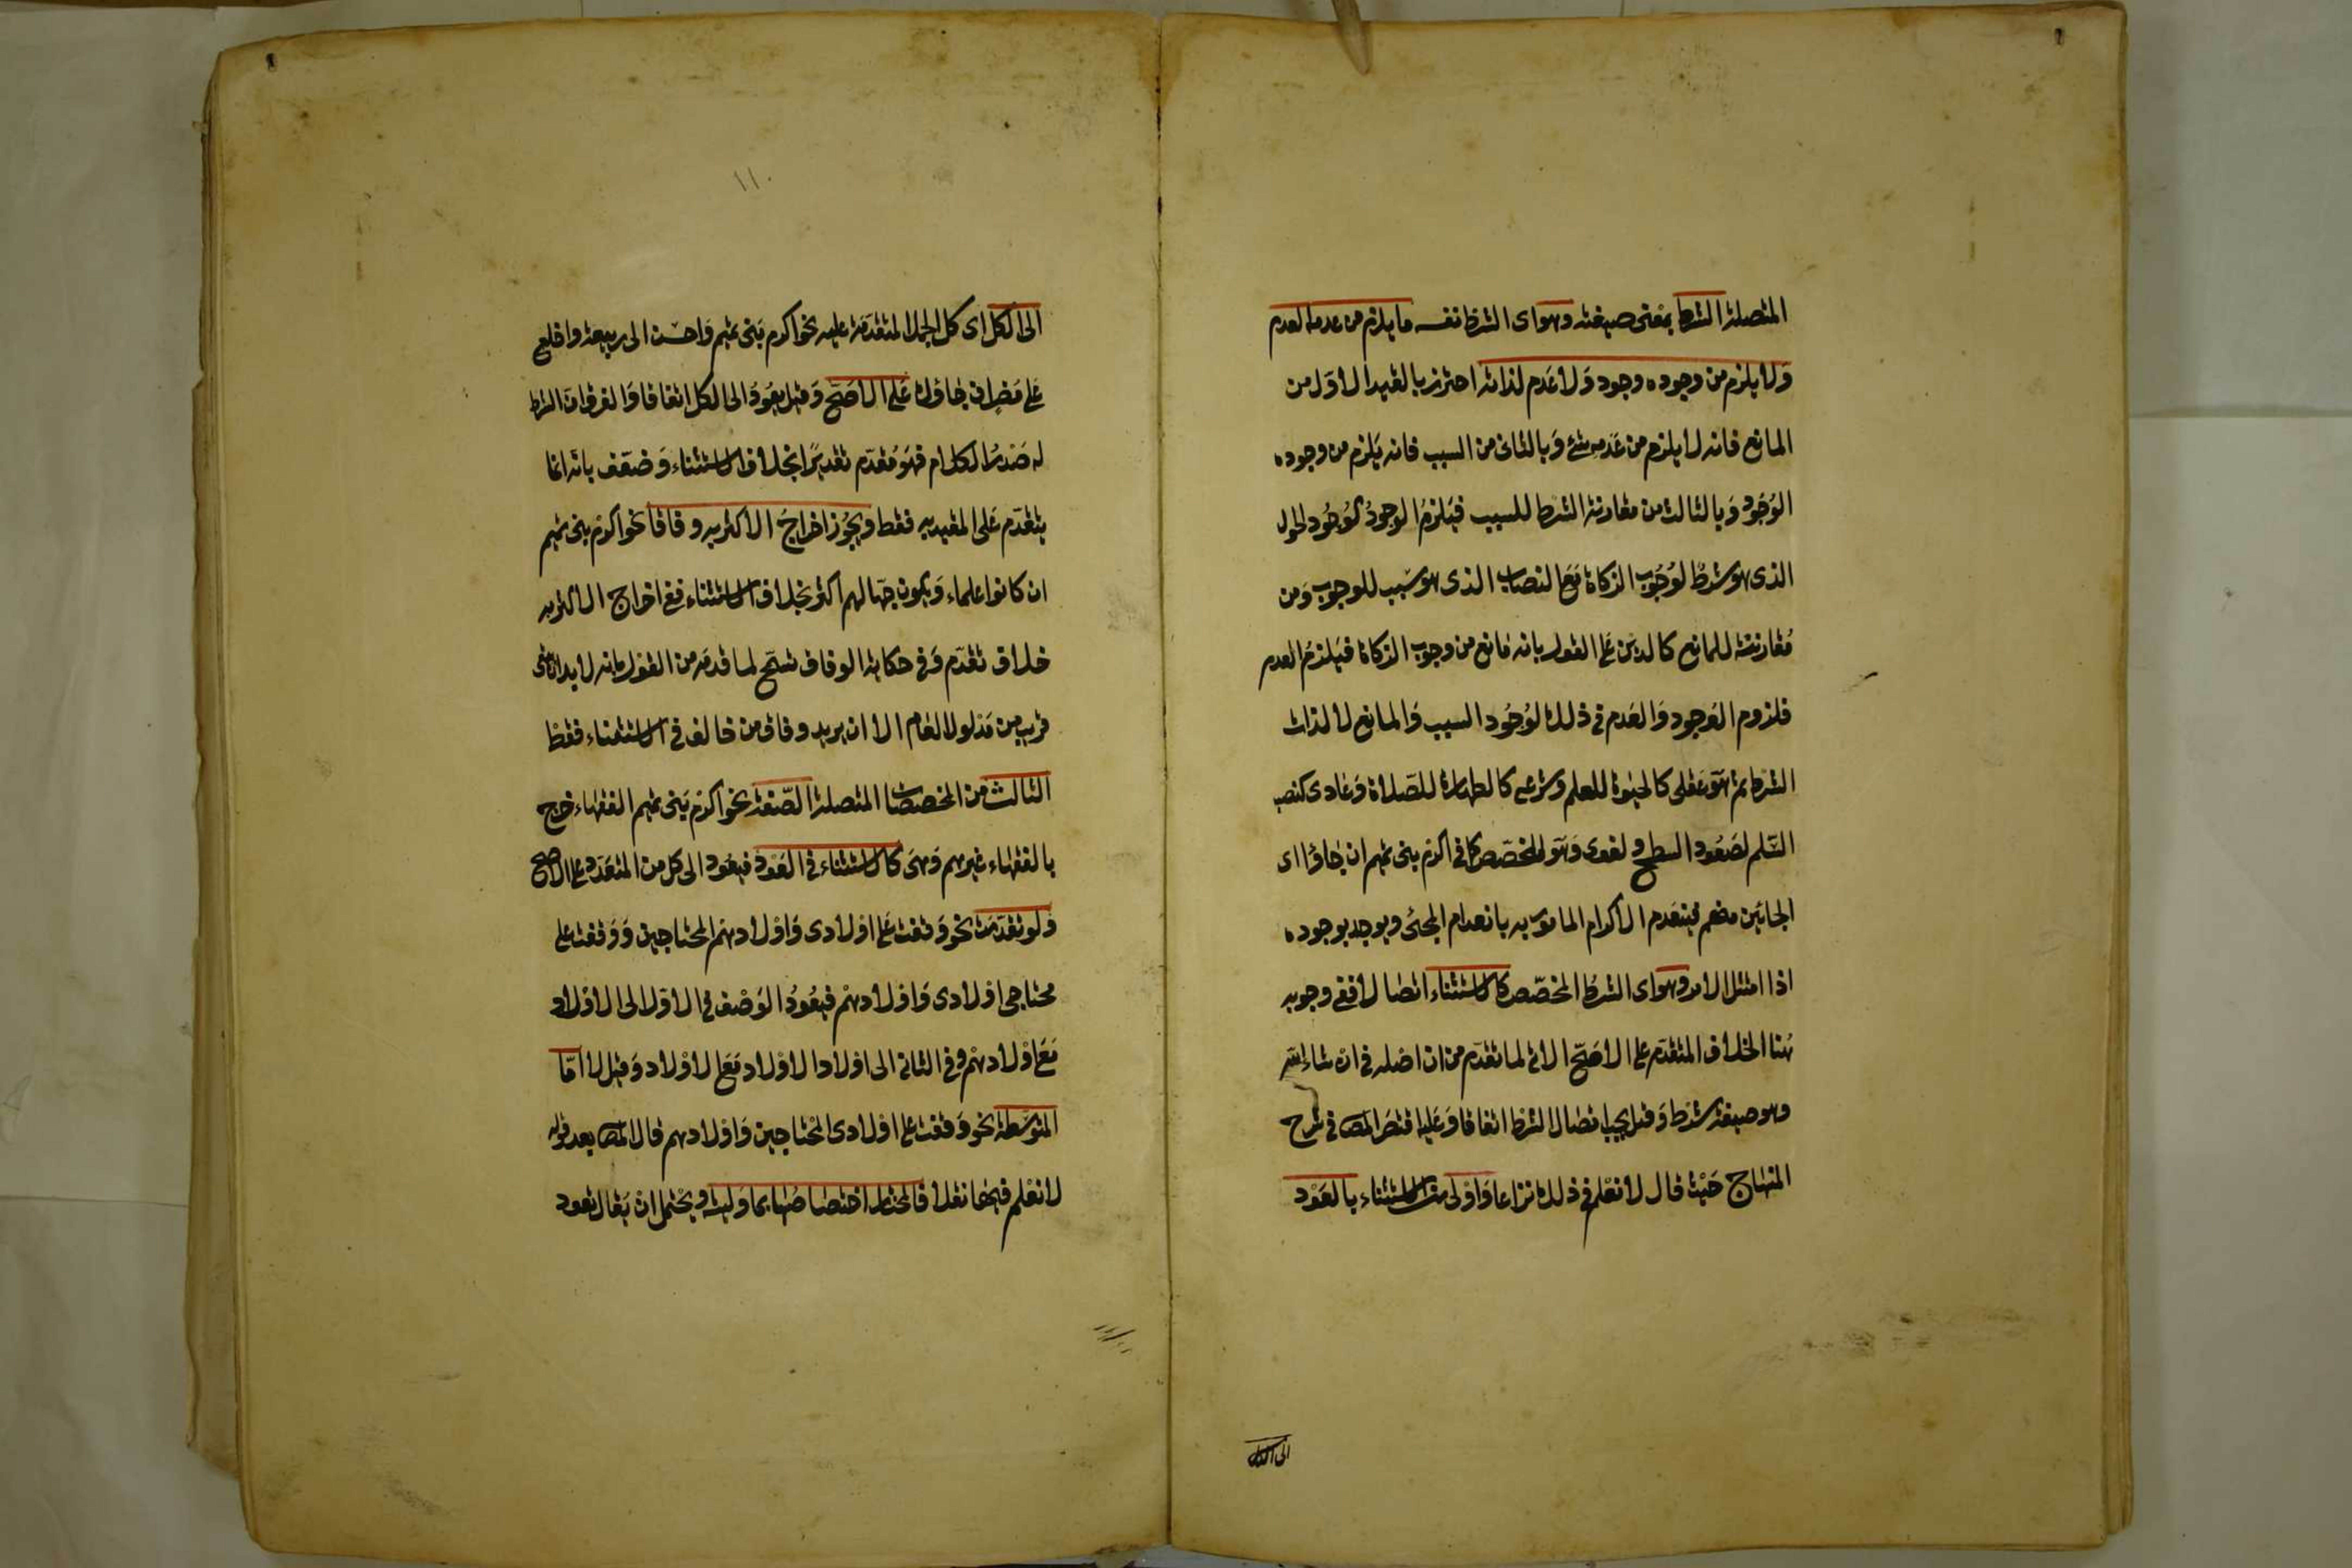 المتصلة الشرط بمعنى صيغته وهو اى الشرط نفسه ما يلزم من عدمه العدم
وَلا يلزم من وجوده وجود وَلا عَدم لذاته احترز بالقيد الأوّل من
المانع فانه لا يلزم من عَدمه شئ وَبالثانى من السبب فانه يَلزم من وجوده
الوُجُود وَبالثالث من مقارنة الشرط للسبب فيَلزمُ الوجودُ كوُجُود الحول
الذى هو شرطٌ لوُجُوب الزكاة مَعَ النصاب الذى هو سَبب للوجوب وَمن
مُقارنته للمانع كالدين عَلى القول بانه مَانع من وجوب الزكاة فيَلزمُ العدم
فلزوم الوجود وَالعَدم فى ذلك لوُجُود السبب وَالمانع لا لذات
الشرط ثم هَوَ عَقلى كالحيوة للعلم وشرعى كالطهارة للصّلاة وَعَادى كنصب
السّلم لصَعُود السطح ولغوى وَهَوَ المخصّص كما فى اكرم بنى تميم ان جَاؤا اى
الجائين منهم فينعَدم الاكرام المامور به بانعدام المجئ ويوجد بوجوده
اذا امتثل الامر وهو اى الشرط المخصّص كالاستثناء اتصالا ففى وجوبه
هُنا الخلاف المتقدّم على الأصَحّ الاتى لما تقدّم من ان اصله فى ان شاء الله
وهو صيغة شرَط وَقيل يجب اتصال الشرط اتفاقا وَعَليه اقتصَر المص فى شرح
المنهَاج حَيْث قال لا نعْلم فى ذلك نزاعا وَاوْلى من الاستثناء بالعَوْد
الى الكل
١١٠
الى الكل اى كل الجمل المتقدّمة عليه نحو اكرم بَنى تميم وَاحسن الى ربيعة واخلع
عَلى مَضر ان جَاؤك عَلى الأصَحّ وَقيل يعَودُ الى الكل اتفاقا وَالفرق ان الشرط
له صَدرُ الكلام فهَوَ مُقدّم تقديرًا بخلاف الاستثناء وَضعّف بانه انما
يتقدّم عَلى المقيد به فقط ويجُوز اخراجُ الأكثر به وفاقا نحو اكرم بنى تميم
ان كانوا علماء وَيكون جهّالهم اكثر بخلاف الاستثناء ففى اخراج الاكثر به
خلاف تقدّم وَفى حكاية الوفاق تسمّح لما قدمَه من القول بانه لا بد ان يبقى
قريب من مَدلول العَام الا ان يريد وفاق من خالف فى الاستثناء فقط
الثالث من المخصصَات المتصلة الصّفة نحو اكرم بَنى تميم الفقهاء خرج
بالفقهَاء غيرهم وَهىَ كالاستثناء فى العَوْد فيعُود الى كل من المتعَدّد على الاصح
وَلو تقدّمَت نحو وَقفت عَلى اولادى وَاوْلادهم المحتاجين وَوَقفت على
محتاجى اولادى وَاوْلادهمْ فيعُودُ الوَصْف فى الاوّل الى الاوْلاد
مَعَ اوْلادهمْ وفى الثانى الى اولاد الاوْلاد مَعَ الاوْلاد وَقيل لا امّا
المتوَسّطة نحو وَقفت على اوْلادى المحْتاجين وَاوْلادهم قال المص بعد قوله
لا نعْلم فيهَا نقلا فالمختار اختصَاصُهَا بما وَليته ويحْتمل ان يَقال تعود